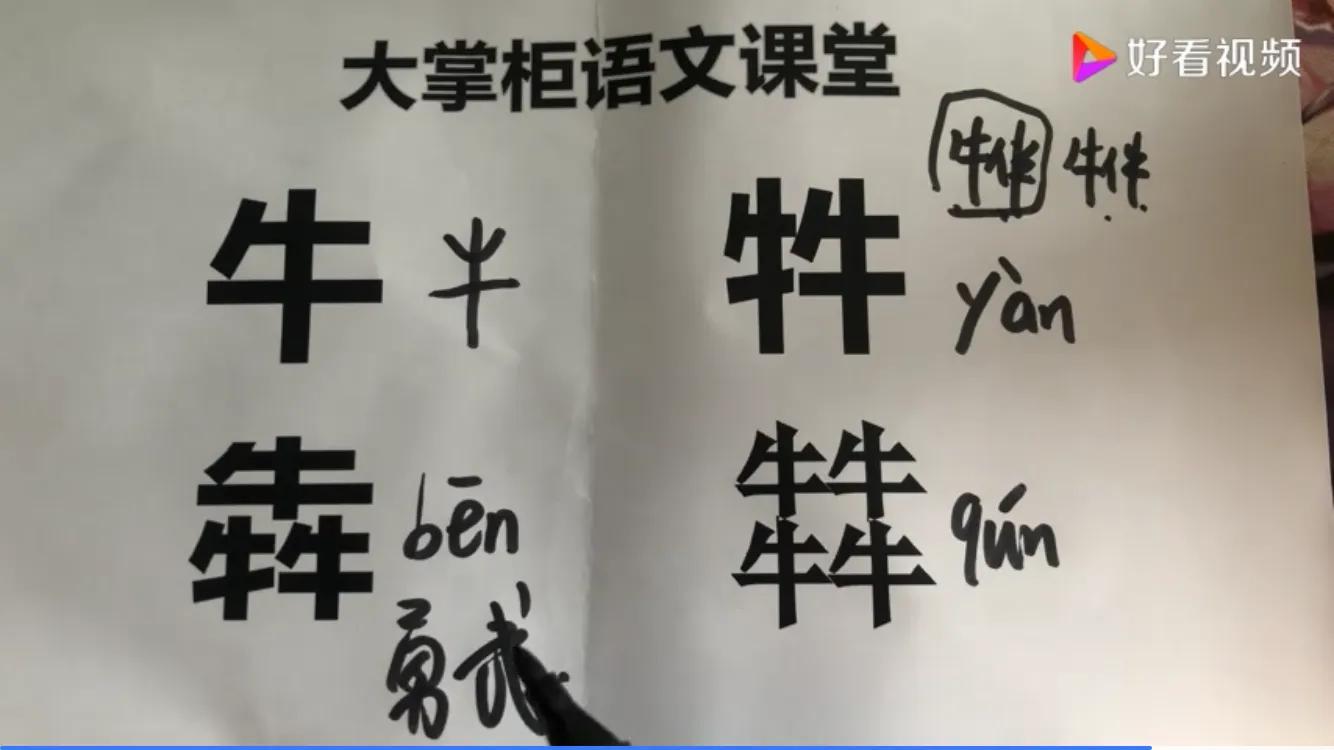 大掌柜语文课堂
好看视频
牛 牛
牪 yàn
犇 bēn
𤛭 qún
勇武